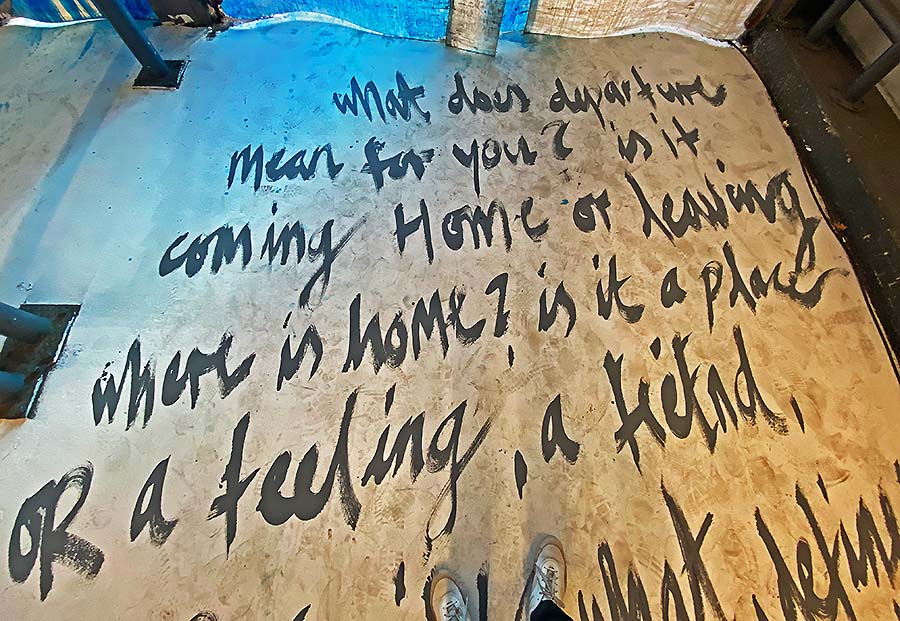 what does departure
mean for you? is it
coming Home or leaving
where is home? is it a place
OR a feeling, a friend,
what define